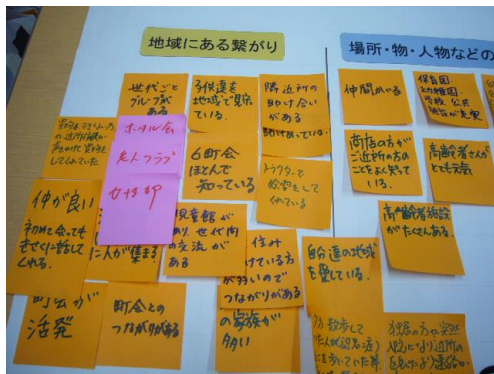 地域にある繋がり
場所・物・人物などの
世代ごと
グループが
ある
子供達を
地域で見守っ
ている。
隣近所の
助け合い
がある
助けあっている。
仲間がいる
保育園
幼稚園
学校 公共
施設が充実
ホタル会
老人クラブ
女性部
6町会
ほとんど
知っている
トラクターで
除雪をして
くれている
商店の方が
ご近所の方の
ことをよく知って
いる。
高齢者さんが
とても元気
仲が良い
初めて会っても
きさくに話して
くれる。
に人が集まる
児童館が
あり、世代間
の交流が
ある
住み
けている方
が多いので
つながりがある
自分達の地域
を愛している。
高齢者施設
がたくさんある。
町会が
活発
町会との
つながりがある
の家族が
多い
散歩して
独居の方が突然
入院になり近所の